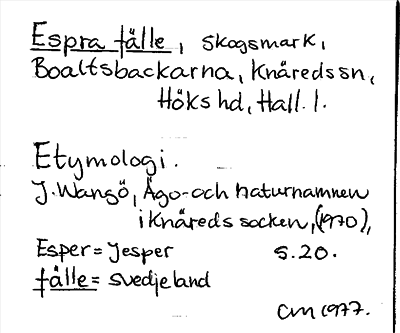 Espra fälle, skogsmark,
Boaltsbackarna, Knäredssn,
Höks hd, Hall. l.
Etymologi.
J. Wangö, Ägo- och naturnamnen
i Knäreds socken, (1970),
Esper = Jesper s. 20.
fälle = svedjeland
CM 1977.